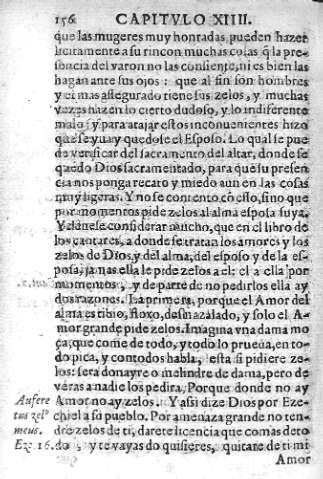 156 CAPITVLO XIIII.
que las mugeres muy honradas pueden hazer
licitamente a su rincon muchas cosas q̃ la pre-
sencia del varon no las consiente, ni es bien las
hagan ante sus ojos: que al fin son hombres
y el mas assegurado tiene sus zelos, y muchas
vezes hazen lo cierto dudoso, y lo indiferente
malo; y para atajar estos inconuenientes hizo
que se yua y quedose el Esposo. Lo qual se pue
de verificar del sacramento del altar, donde se
quedo Dios sacramentado, para que su presen
cia nos ponga recato y miedo aun en las cosas
muy ligeras. Y no se contento cõ esto, sino que
por momentos pide zelos al alma esposa suya.
considerar mucho, que en el libro de
los cantares, a donde se tratan los amores y los
zelos de Dios, y del alma, del esposo y de la es-
posa, jamas ella le pide zelos a el: el a ella por
momentos, y de parte de no pedirlos ella ay
dos razones. La primera, porque el Amor del
alma es tibio, floxo, desmazalado, y solo el A-
mor grande pide zelos. Imagina vna dama mo
ça, que come de todo, y todo lo prueua, en to-
do pica, y con todos habla, esta si pidiere ze-
los: sera donayre o melindre de dama, pero de
veras a nadie los pedira. Porque donde no ay
Aufere Amor no ay zelos. Y assi dize Dios por Eze-
tus zelꝰ chiel a su pueblo. Por amenaza grande no ten-
meus. dre zelos de ti, darete licencia que comas de to
Ez. 16. do, y te vayas do quisieres, quitare de ti mi
Amor